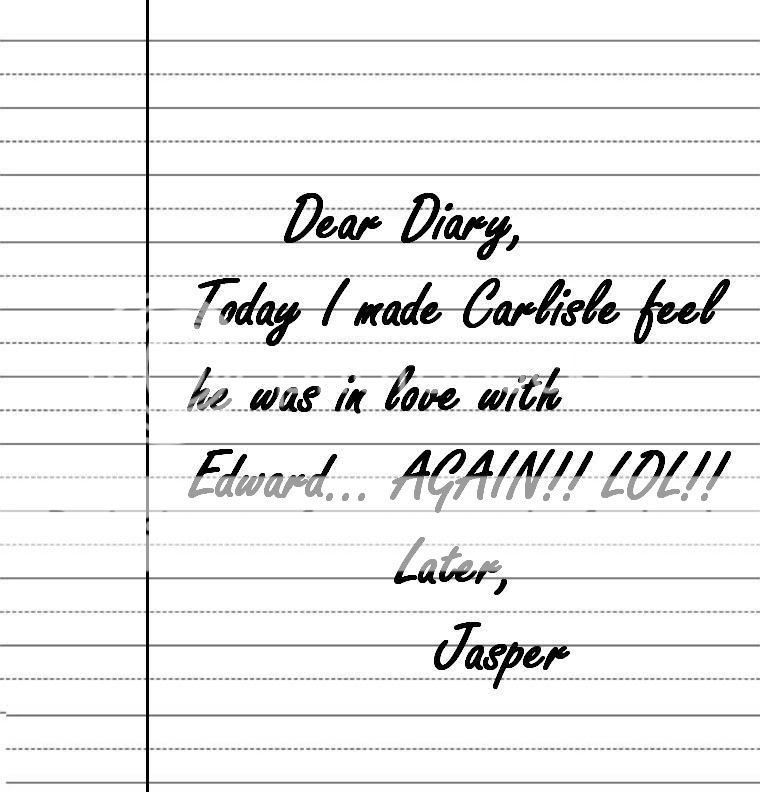 Dear Diary,
Today I made Carlisle feel
he was in love with
Edward... AGAIN!! LOL!!
Later,
Jasper